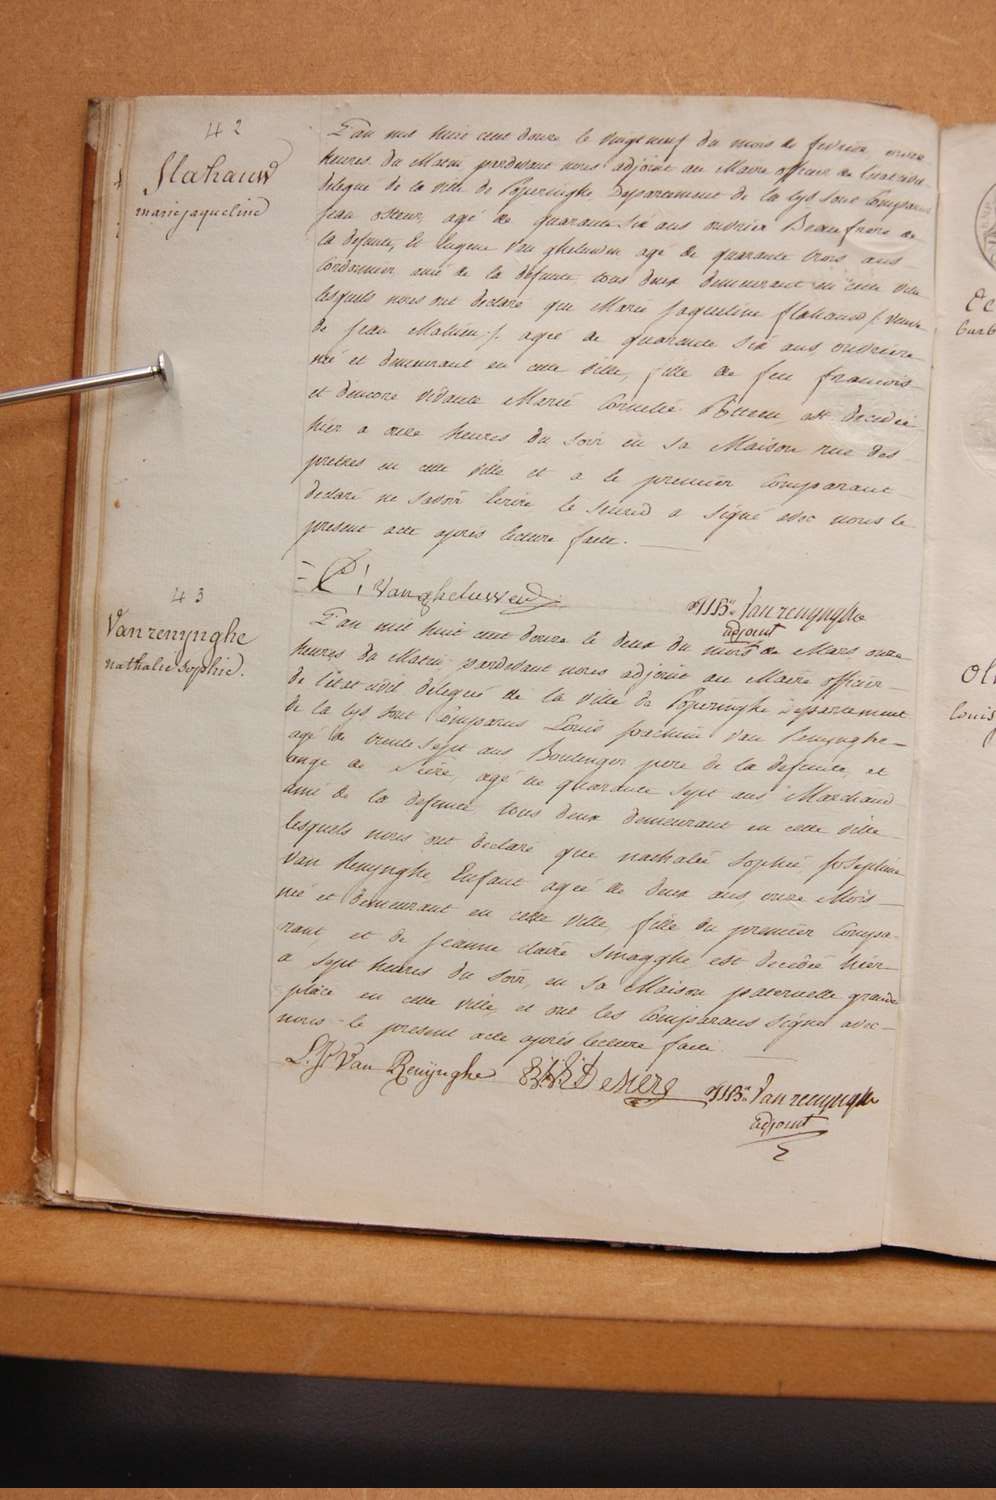 42
Flahauw
marie jaqueline
L'an mil huit cent douze le vingt neuf du mois de fevrier onze
heures du Matin pardevant nous adjoint au Maire officier de l'etat civil
delegué de la ville de Poperinghe Departement de la Lys sont Comparus
Jean agé de quarante six ans ouvrier Beaufrere de
la defunte, Et Eugene Van gheluwen agé de quarante trois ans
Cordonnier ami de la defunte tous deux demeurant en cette ville
lesquels nous ont declaré que Marie Jaqueline flahauw /. veuve
de Jean Mahieu ./. ageé de quarante six ans, ouvriere
neé et demeurant en cette ville, fille de feu francois
et d'encore vivante Marie Cornelie est decedeé
hier a onze heures du soir en sa Maison rue des
pretres en cette ville et a le premier Comparant
declaré ne savoir Ecrire le second a signé avec nous le
present acte après lecture faite.
Vangheluwen
Van renynghe
adjoint
43
Vanrenynghe
nathalie sophie.
L'an mil huit cent douze le deux du mois de Mars onze
heures du Matin pardevant nous adjoint au Maire officier
de l'état civil delegué de la ville de Poperinghe Departement
de la Lys sont Comparus Louis Joachim Van Renynghe
agé de trente sept ans Boulanger pere de la defunte, et
ange de Siere, agé de quarante sept ans Marchand
ami de la defunte tous deux demeurant en cette ville
lesquels nous ont declaré que nathalie Sophie Josephine
Van Renynghe, Enfant ageé de deux ans, onze Mois
neé et demeurant en cette ville, fille du premier Compa-
rant, et de Jeanne claire Smagghe est decedeé hier
a sept heures du soir, en sa Maison paternelle grande
place en cette ville, et ont les Comparans signé avec
nous le present acte après lecture faite.
L. J. Van Renÿnghe Desiere Van renynghe
adjoint